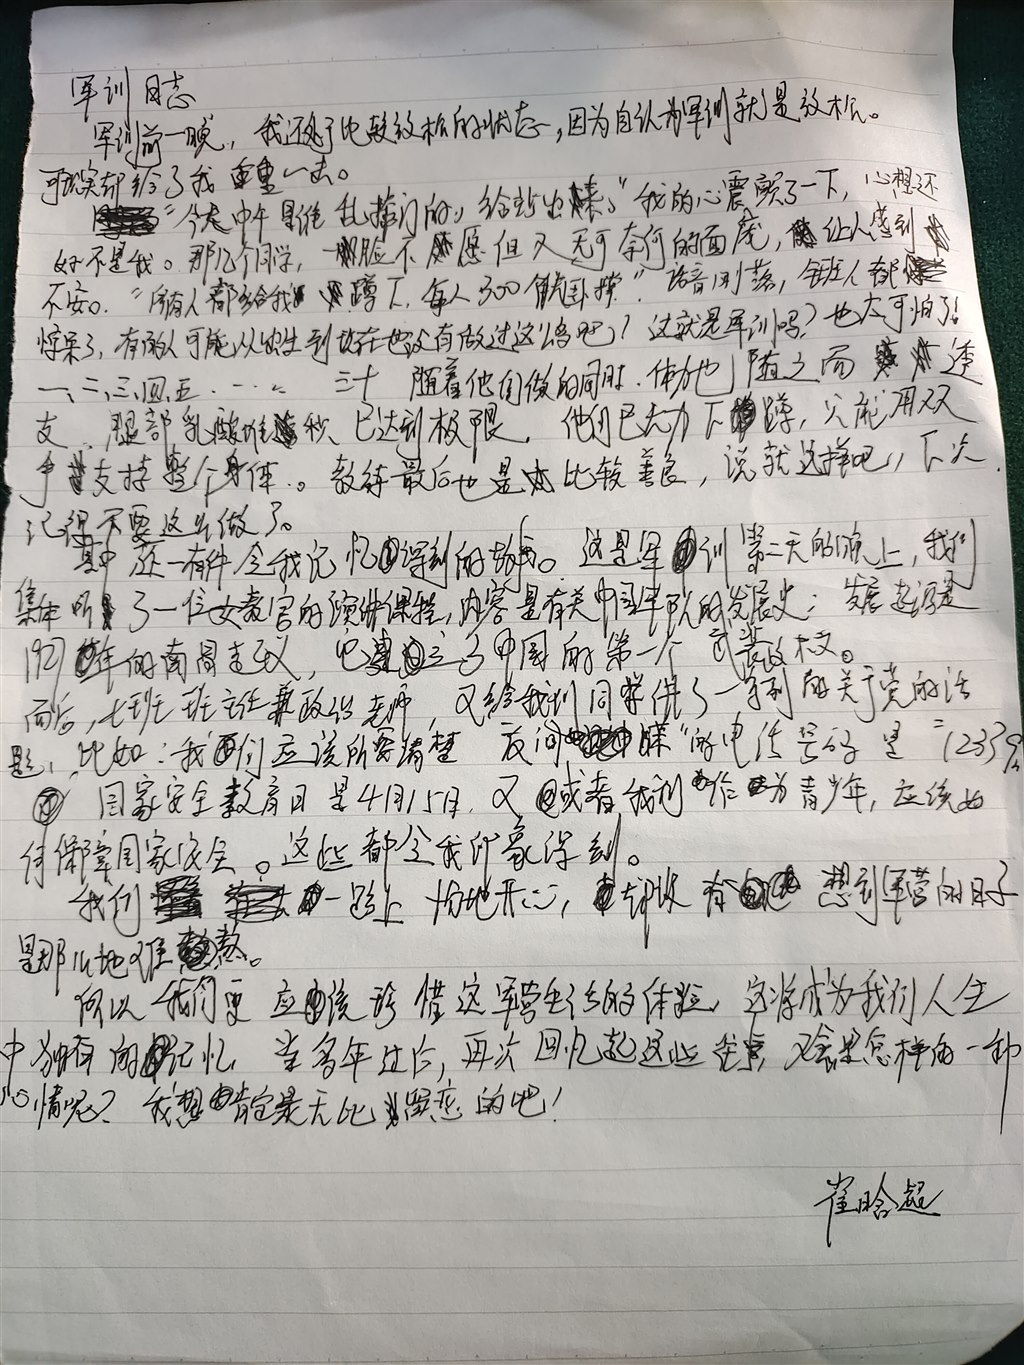 军训日志
军训前一晚，我还处于比较放松的状态，因为自认为军训就是放松。
可现实却给了我重重一击。
“今天中午是谁乱搞门的，给我出来”我的心震颤了一下，心想还
好不是我。那几个同学，一脸不愿但又无可奈何的面庞，让人感到
不安。“所有人都给我蹲下，每人300个俯卧撑”话音刚落，每人都
惊呆了，有的人可能从出生到现在也没有做过这么多吧！这就是军训吗？也太可怕了！
一、二、三、四、五……三十 随着他们做的同时，体力也随之而透
支，腿部乳酸堆积，已达到极限，他们已无力下蹲，只能用双
手支撑整个身体。教练最后也是比较善良，说就这样吧，下次
记得不要这么做了。
其中还一有件令我记忆深刻的故事。这是军训第二天的晚上，我们
集体听了一位女教官的演讲课程，内容是有关中国军队的发展史：发展起源是
1927年的南昌起义，它建立了中国的第一个武装政权。
而后，七班班主任兼政治老师，又给我们同学供了一系列的关于党的话
题，比如：我们应该所要清楚 反间谍的电话号码是“12339”
国家安全教育日是4月15日，又或者我们作为青少年，应该如
何保障国家安全。这些都令我印象深刻。
我们一路上 开心，却没有想到军营的日子
是那么地难熬。
所以我们更应该珍惜这军营生活的体验，这将成为我们人生
中独有的记忆，当多年过后，再次回忆起这些往事，又会是怎样的一种
心情呢？我想肯定是无比留恋的吧！
崔晗超